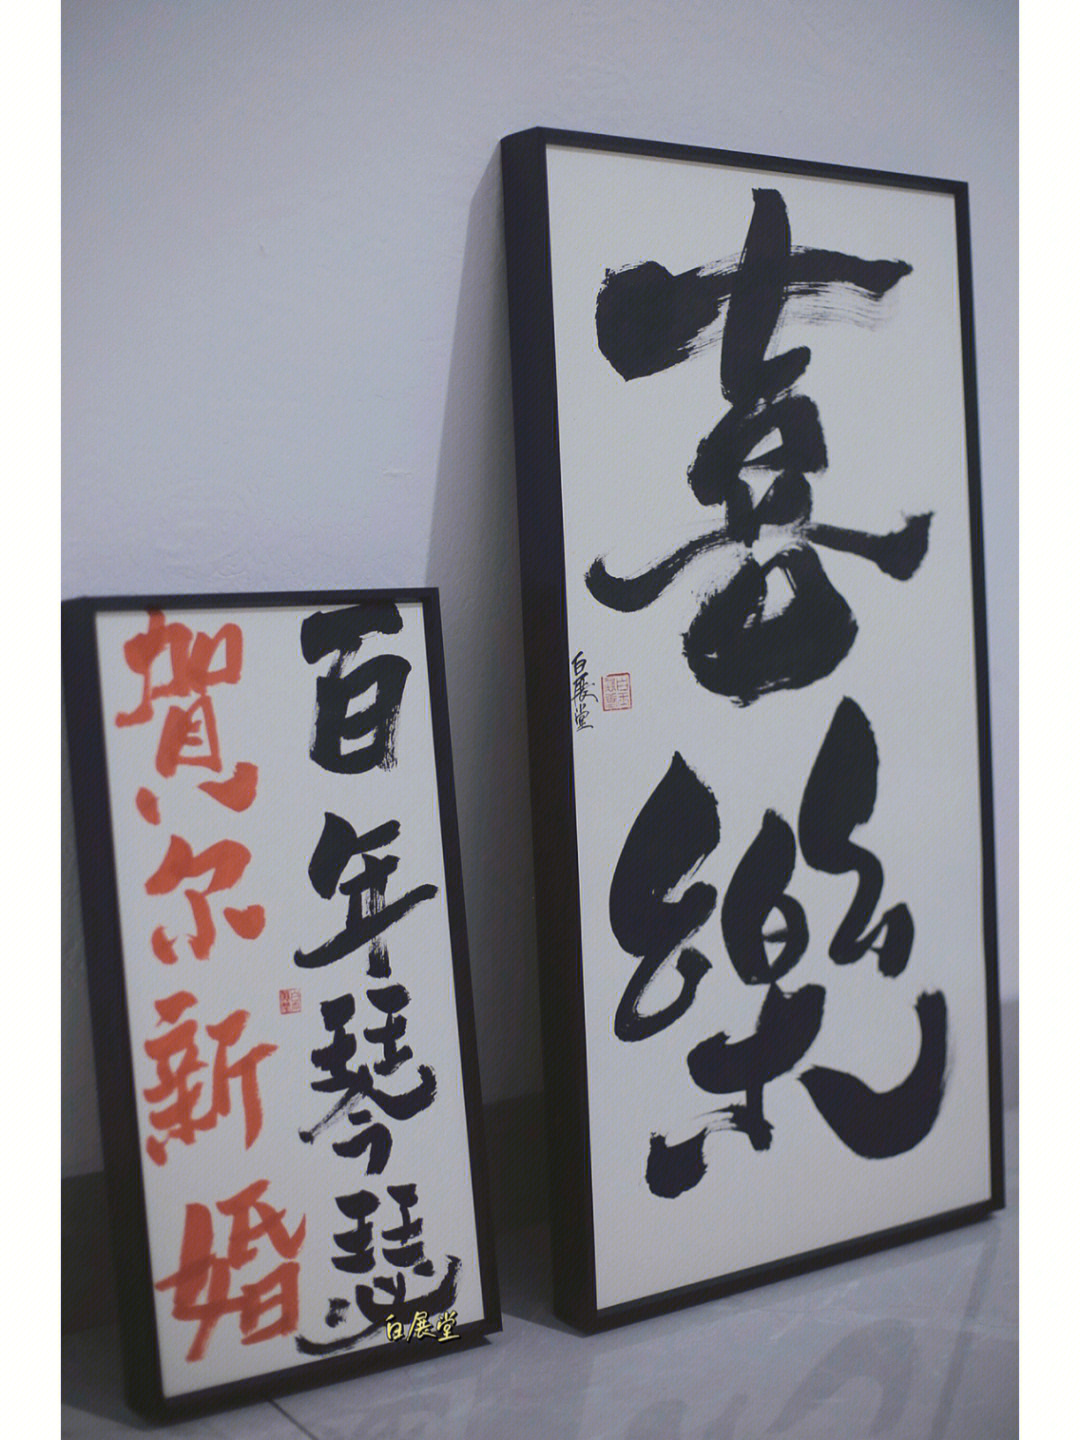 百年琴瑟
賀尔新婚
喜樂
白展堂
白展堂